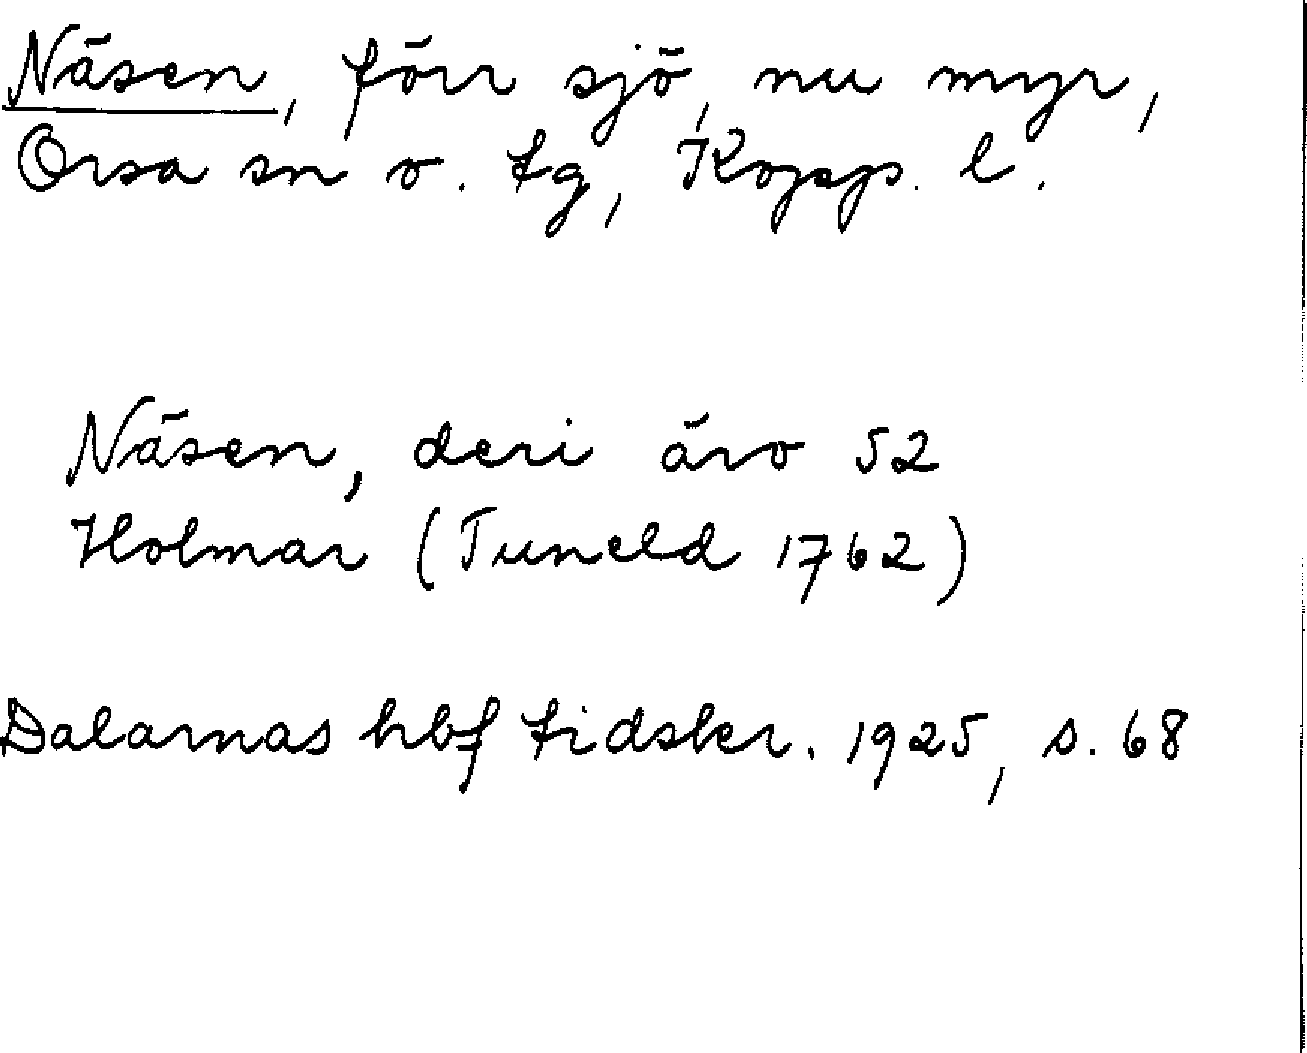 Näsen, förr sjö, nu myr,
Orsa sn o. tg, Kopp. l.
Näsen, deri äro 52
Holmar (Tuneld 1762)
Dalarnas hbf tidskr. 1925, s. 68